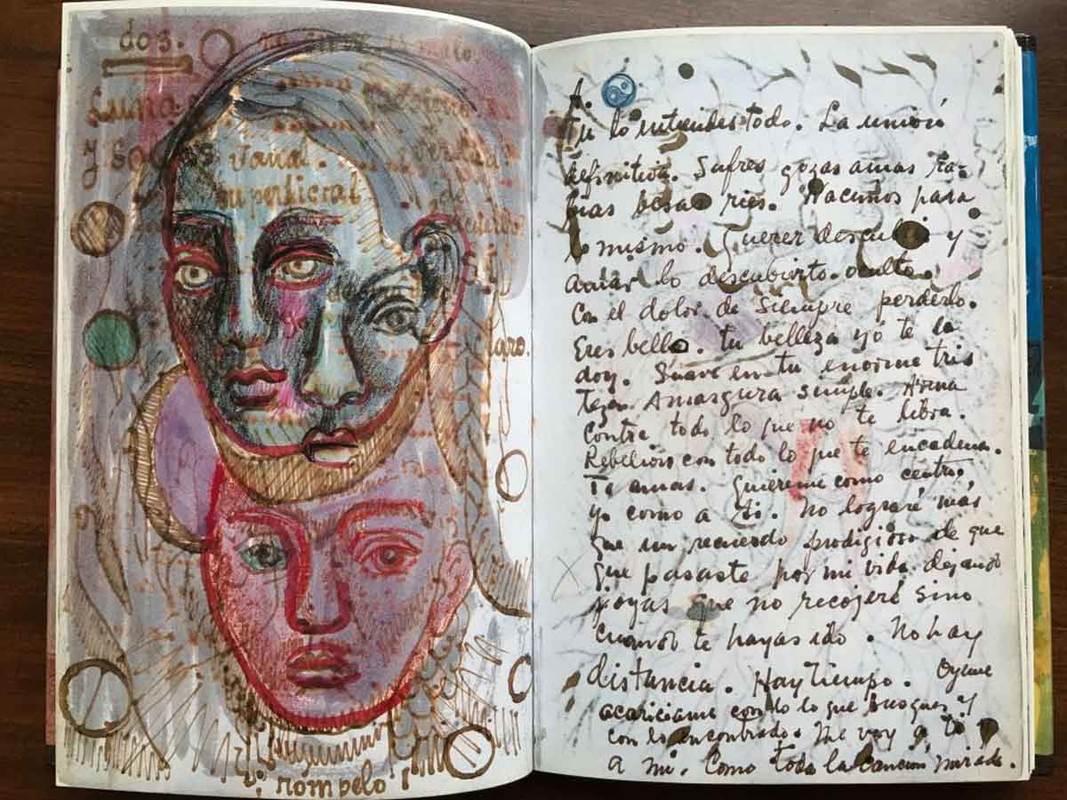 dos.
Luna.
y sol
vana.
superficial
Tu lo entiendes todo. La unión
definitiva. Sufres gozas amas ra-
bias besas ries. Nacimos para
lo mismo. Querer descu y
amar lo descubierto. oculto.
Con el dolor de siempre perderlo.
Eres bello. tu belleza yó te la
doy. Suave en tu enorme tris
teza. Amargura simple. Arma
contra todo lo que no te libra.
Rebelion con todo lo que te encadena.
Te amas. Quiereme como centro
yo como a ti. No lograré más
que un recuerdo prodigioso de que
que pasaste por mi vida dejando
joyas que no recojeré sino
cuando te hayas ido. No hay
distancia. Hay tiempo. Oyeme
acariciame con lo que busques y
con lo encontrado. Me voy a ti
a mi. Como toda la cancion mirada.
rompelo!